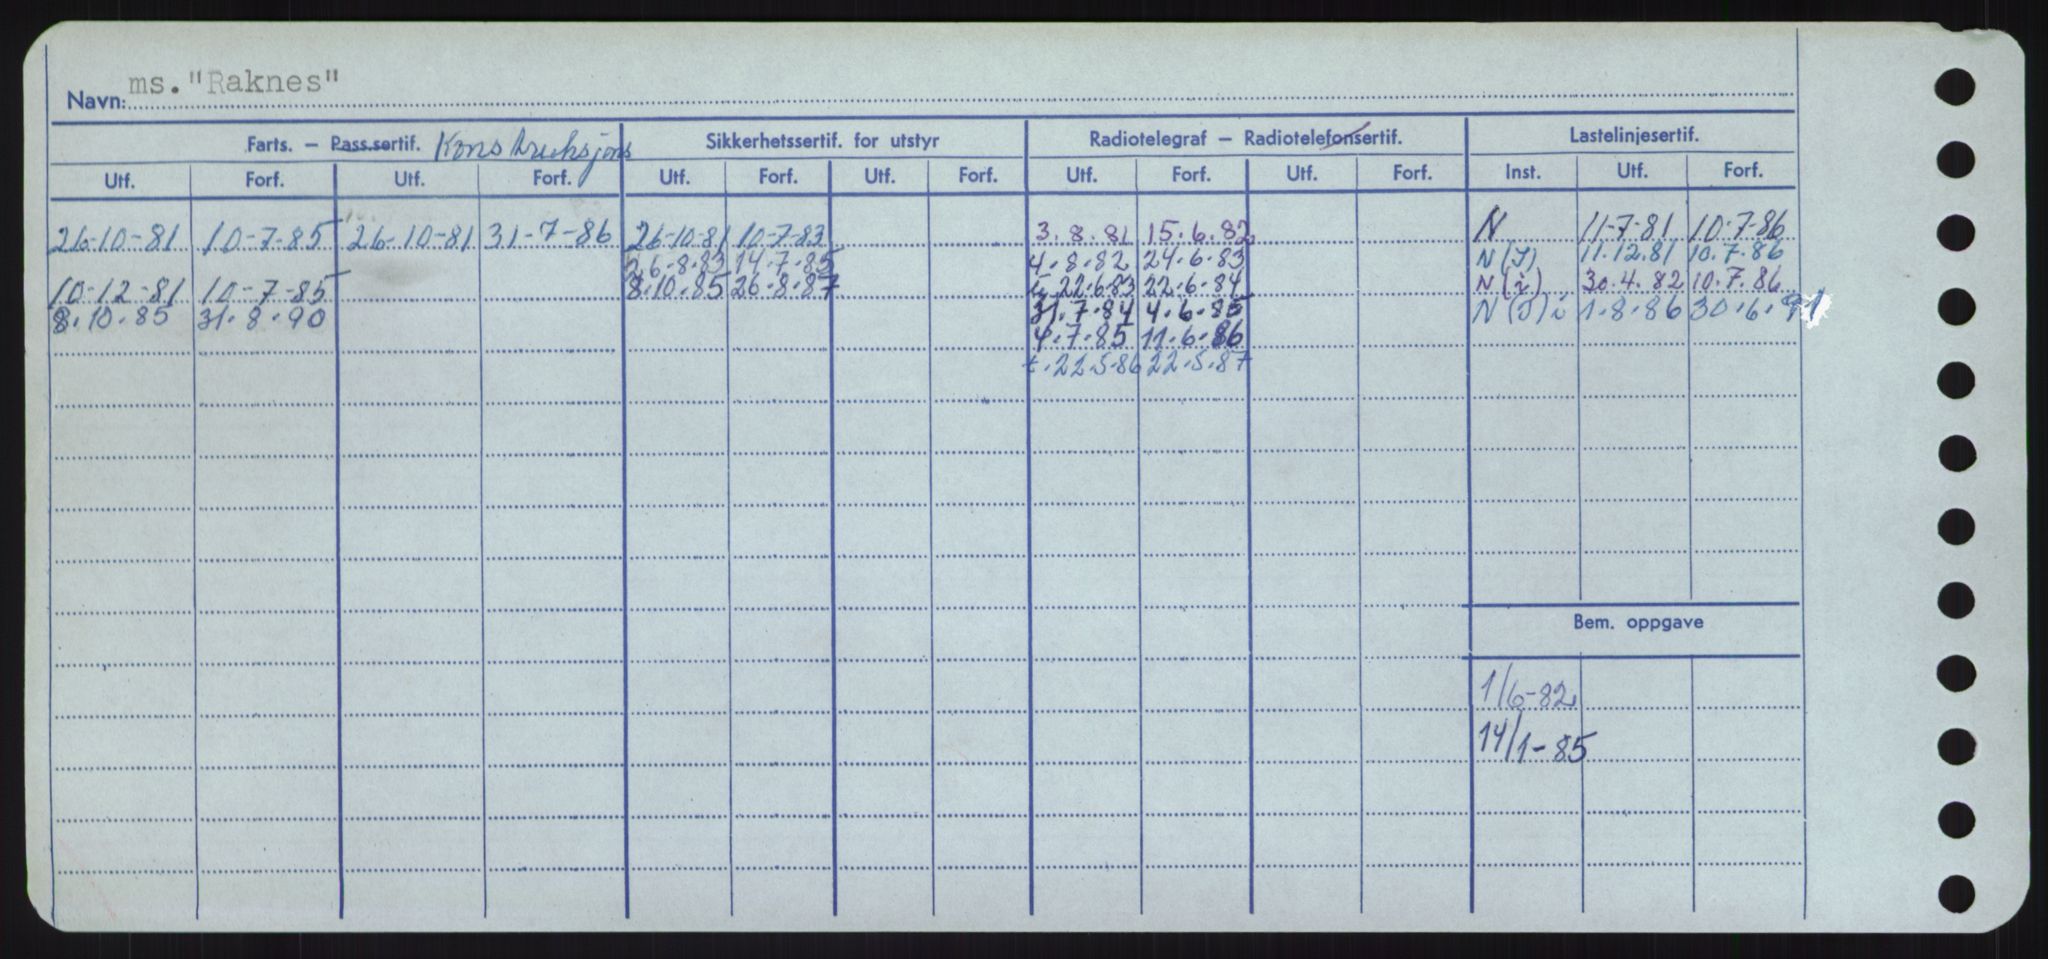 Navn: ms. "Raknes"
Farts. – Pass.sertif. Konstruksjons Sikkerhetssertif. for utstyr Radiotelegraf – Radiotelefonsertif. Lastelinjesertif.
Utf. Forf. Utf. Forf. Utf. Forf. Utf. Forf. Utf. Forf. Utf. Forf. Inst. Utf. Forf.
26-10-81 10-7-85 26-10-81 31-7-86 26-10-81 10-7-83 3.8.81 15.6.82 N 11-7-81 10-7-86
26.8.83 14.7.85 4.8.82 24.6.83 N(I) 11.12.81 10.7.86
10-12-81 10-7-85 8.10.85 26.8.87 22.6.83 22.6.84 N(i) 30.4.82 10.7.86
8.10.85 31.8.90 31.7.84 4.6.85 N(I)i 1.8.86 30.6.91
4.7.85 11.6.86
t.22.5.86 22.5.87
Bem. oppgave
1/6-82
14/1-85